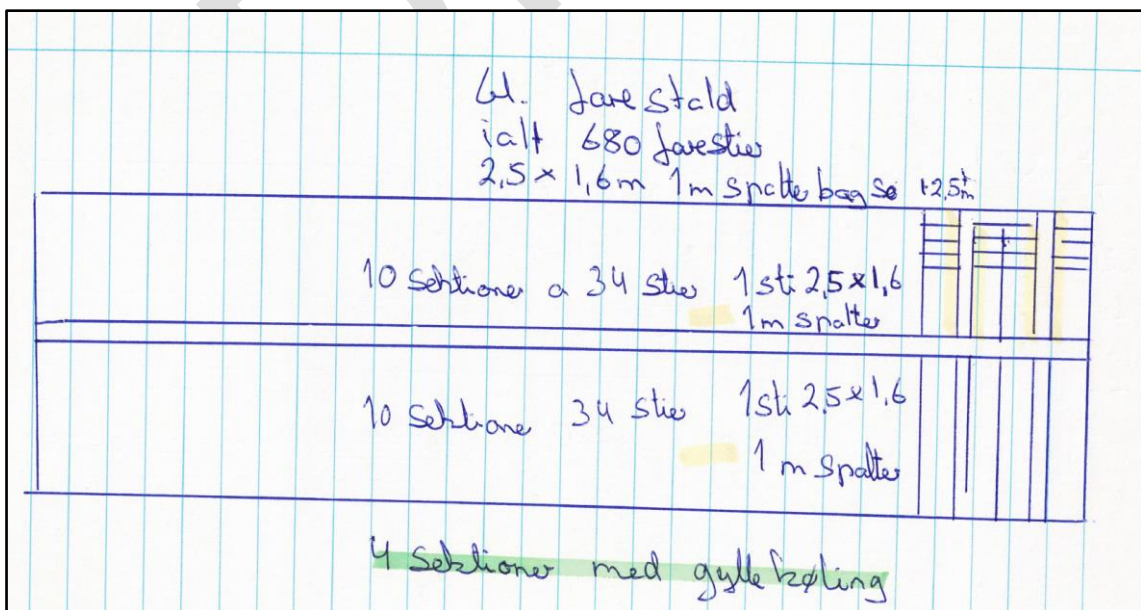 Gl. farestald
ialt 680 farestier
2,5 x 1,6m 1m spalte bag so
10 sektioner a 34 stier 1 sti 2,5 x 1,6
1m spalter
10 sektione 34 stier 1 sti 2,5 x 1,6
1 m spalter
4 sektioner med gyllekøling